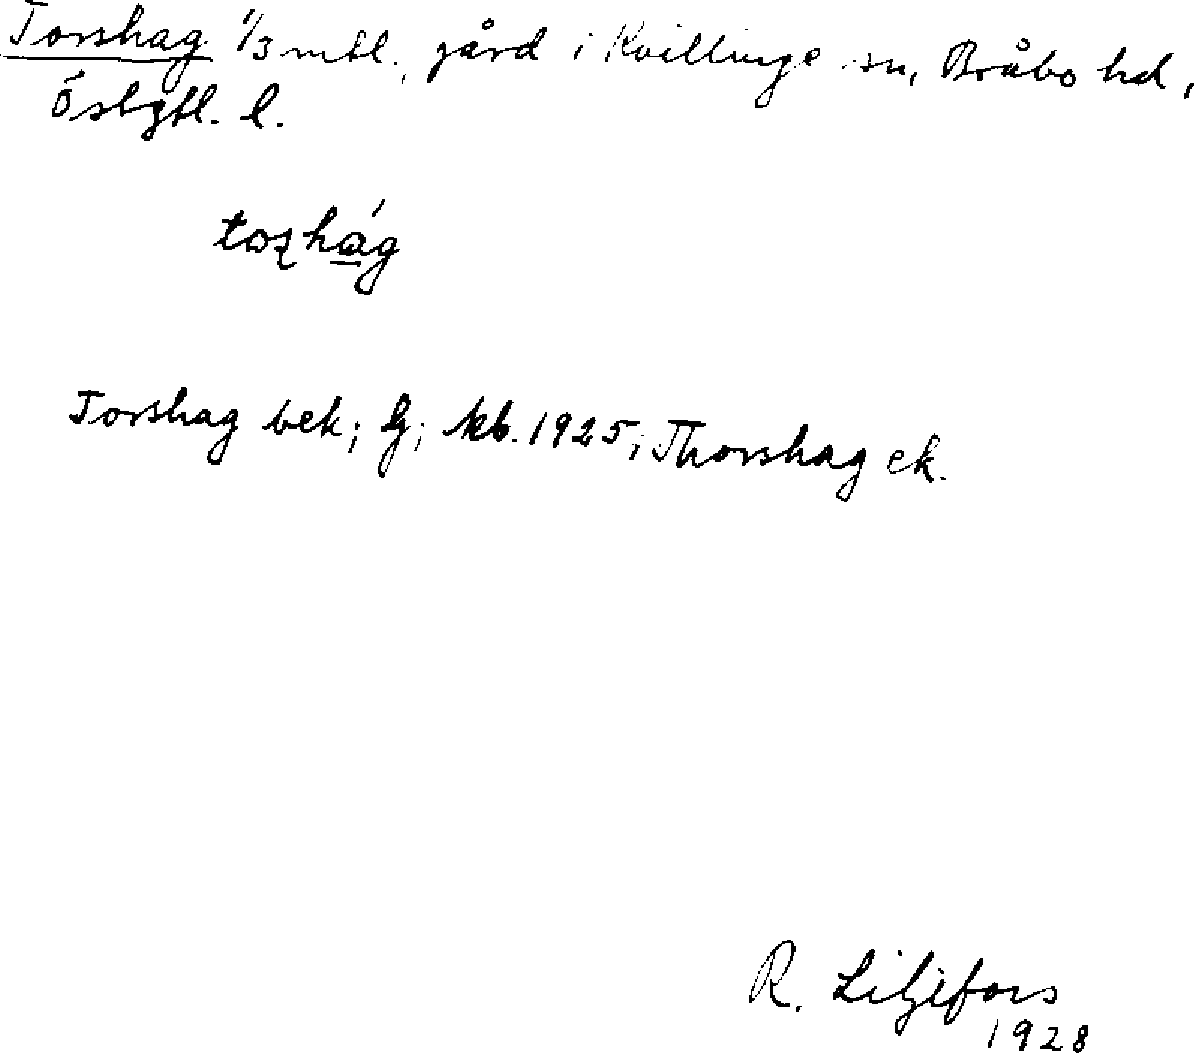 Torshag 1/3 mtl., gård i Kvillinge sn, Bråbo hd,
Östgtl. l.
toʂhág
Torshag bek; G; kb. 1925; Thorshag ek.
R. Liljefors
1928